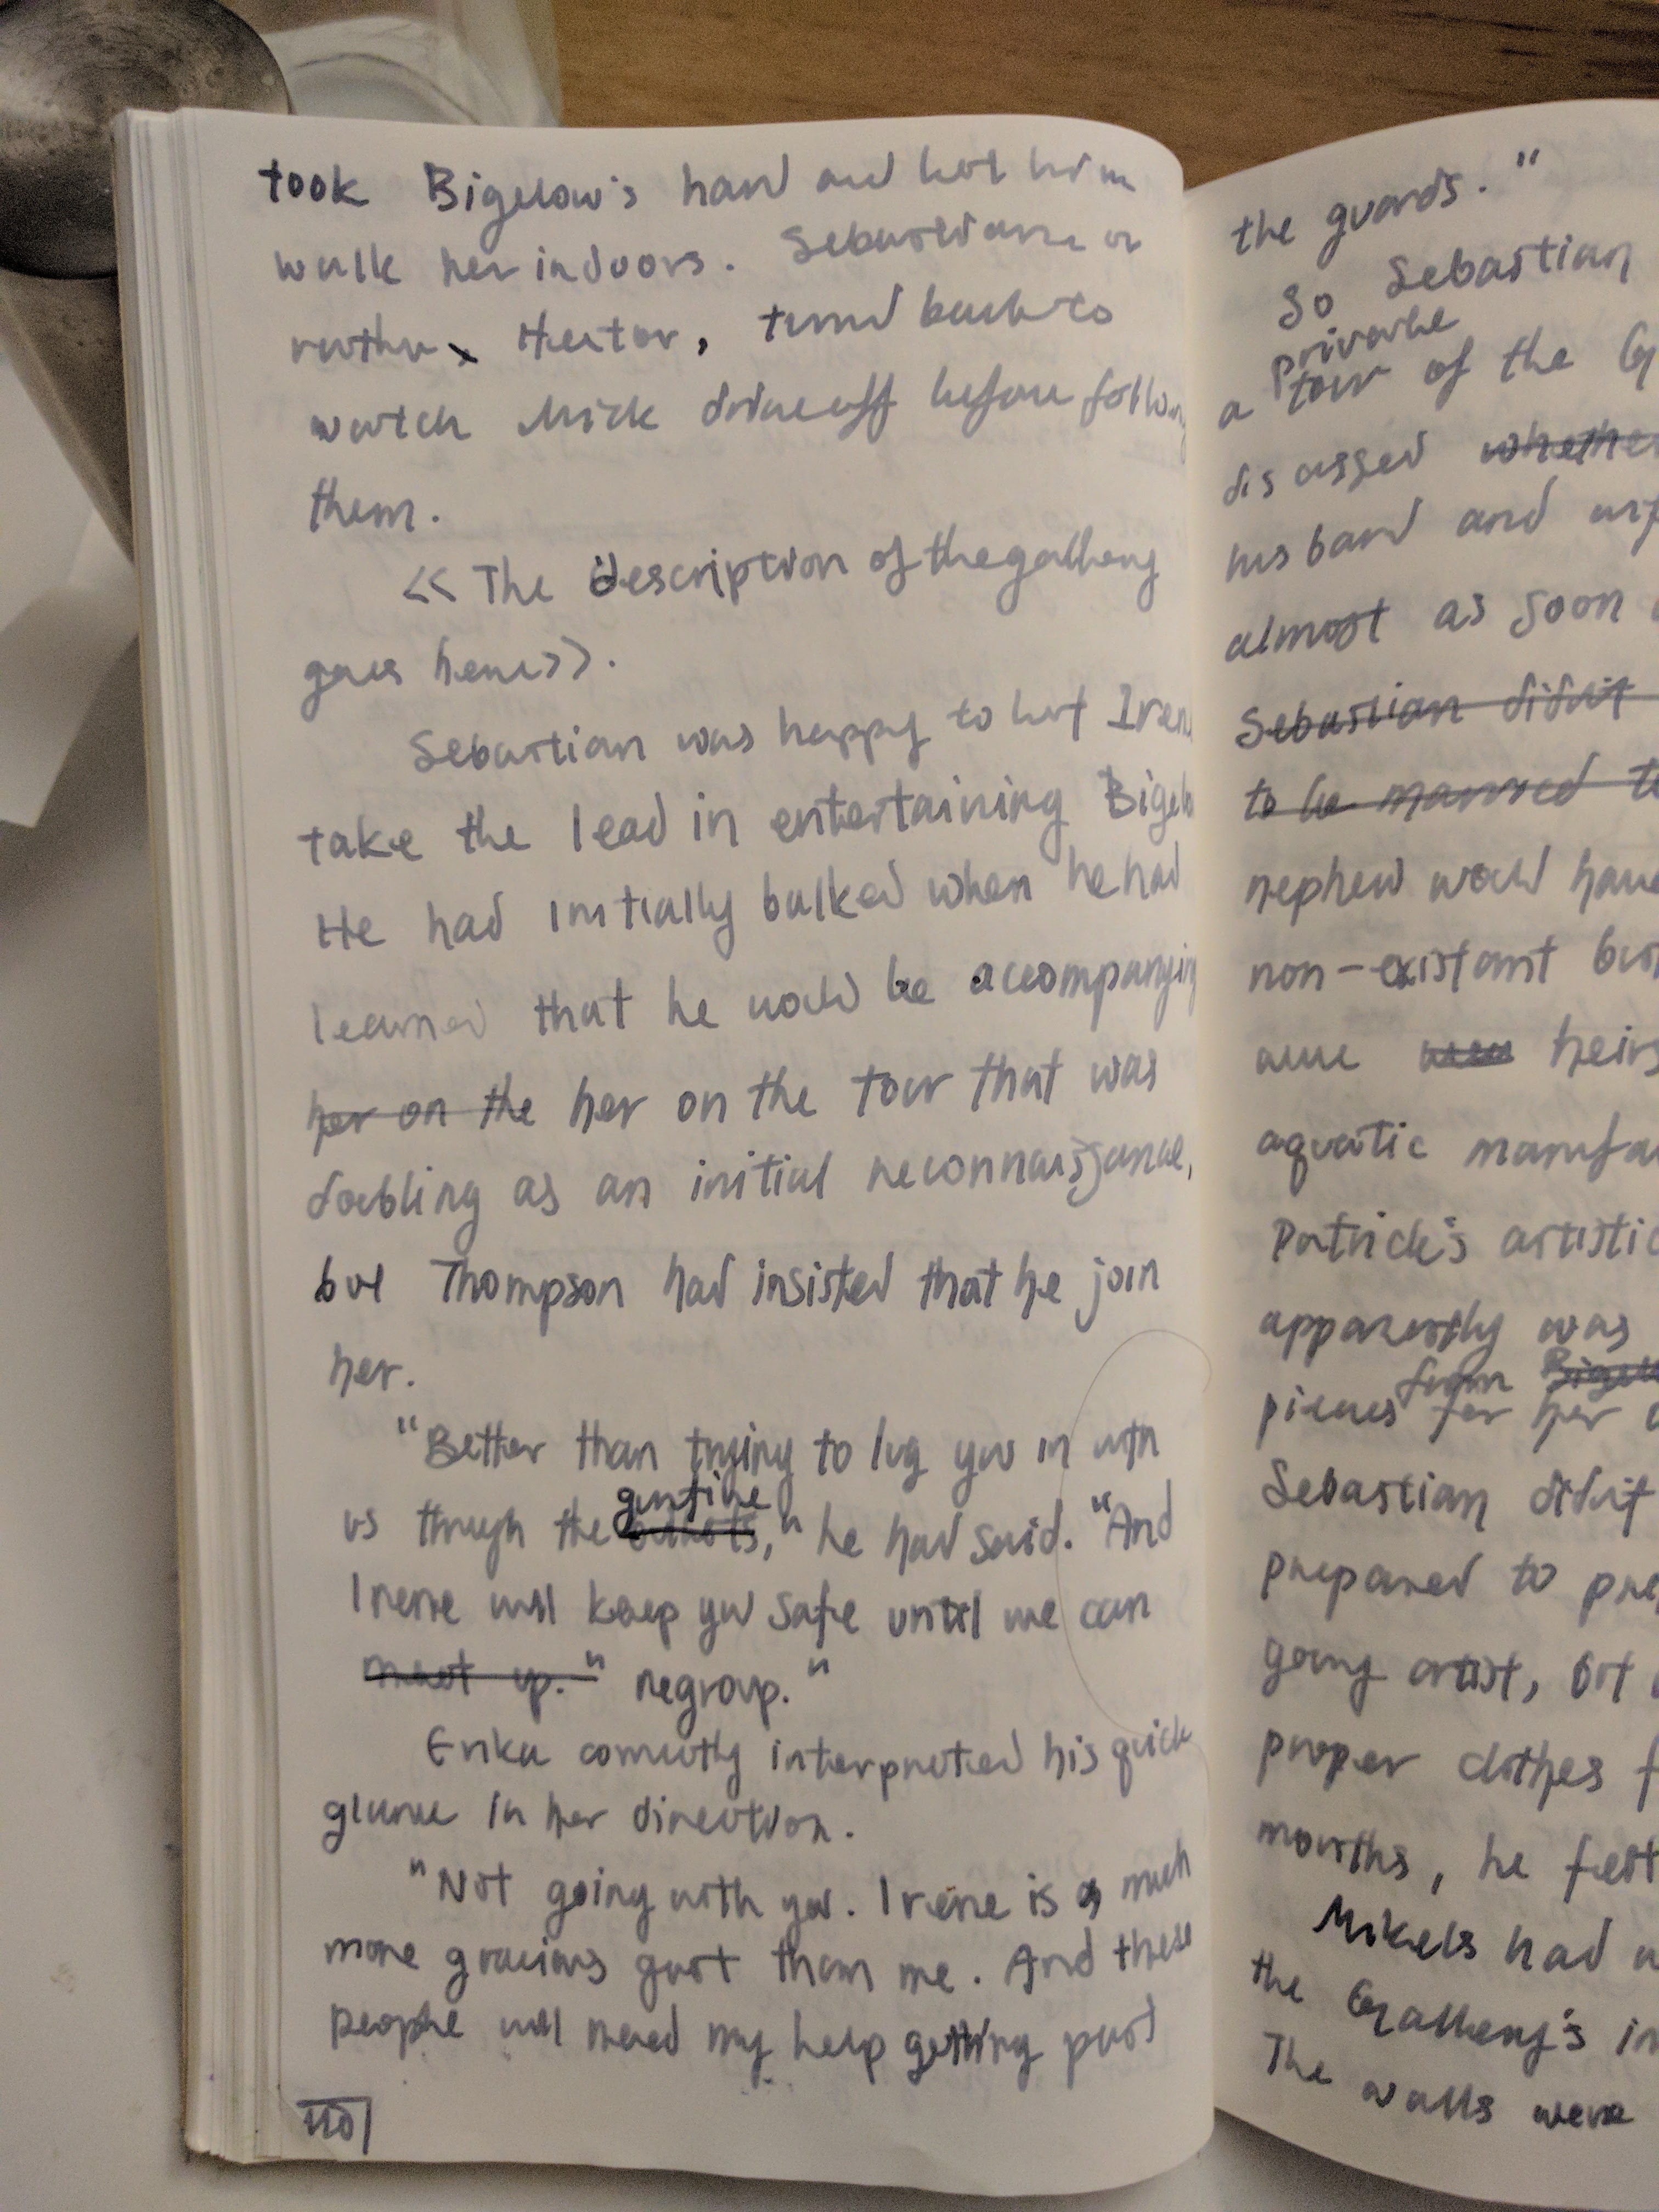 took Bigelow's hand and let him
walk her indoors. Sebastian or
rather Hector, turned back to
watch Mick drive off before following
them.
<< The description of the gallery
goes here>>.
Sebastian was happy to let Irene
take the lead in entertaining Bigelo
He had initially balked when he had
learned that he would be accompanying
her on the her on the tour that was
doubling as an initial reconnaissance,
but Thompson had insisted that he join
her.
"Better than trying to lug you in with
gunfire
us through the," he had said. "And
Irene will keep you safe until we can
meet up." regroup."
Erika correctly interpreted his quick
glance in her direction.
"Not going with you. Irene is a much
more gracious guest than me. And these
people will need my help getting past
110
the guards."
So Sebastian
private
a tour of the G
discussed whether
husband and wif
almost as soon
Sebastian didn't
to be married t
nephew would have
non-existant bus
were heirs
aquatic manufa
Patrick's artistic
apparently was
from Bigel
pieces for her
Sebastian didn't
prepared to pre
going artist, but
proper clothes f
months, he felt
Mikels had
the Gallery's in
The walls were